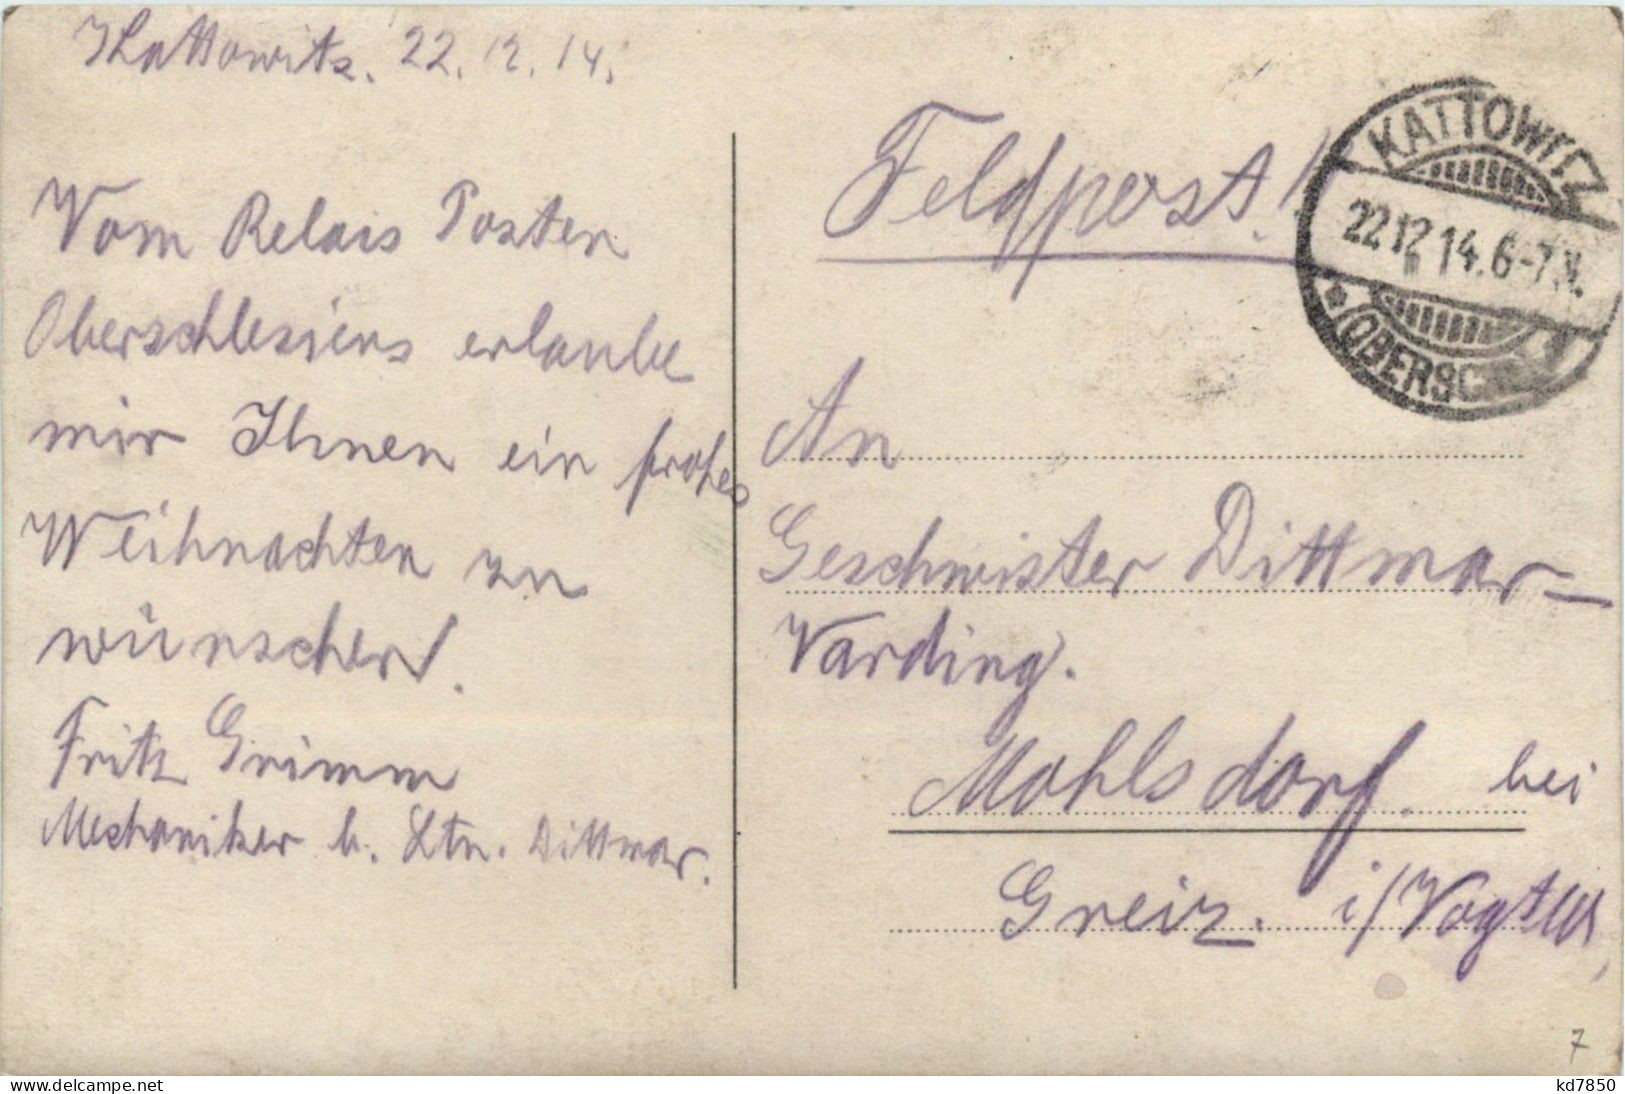 Kattowitz. 22.12.14.
Vom Relais Posten
Oberschlesiens erlaube
mir Ihnen ein frohes
Weihnachten zu
wünschen!
Fritz Grimm
Mechaniker b. Ltn. Dittmar.
Feldpost!
KATTOWITZ
22 12 14. 6-7 V.
* (OBERSC
An
Geschwister Dittmar-
Varding.
Mohlsdorf. bei
Greiz. i/Vogtld,
7
kd7850